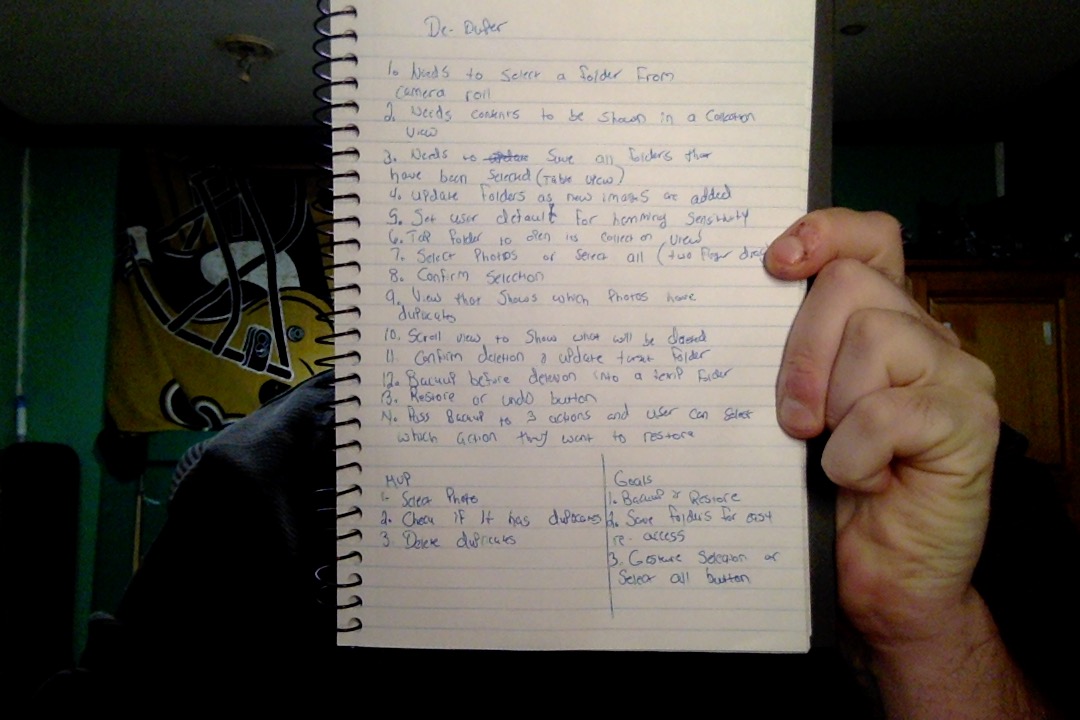 De-Duper
1. Needs to select a folder from
camera roll
2. Needs contents to be shown in a Collection
view
3. Needs to save all folders that
have been selected (table view)
4. update folders as new images are added
5. Set user default for hamming sensitivity
6. Tap folder to open its collection view
7. Select Photos or select all (two finger drag
8. Confirm selection
9. View that shows which photos have
duplicates
10. Scroll view to show what will be deleted
11. Confirm deletion & update target folder
12. Backup before deletion into a temp folder
13. Restore or undo button
14. Backup to 3 actions and user can select
which action they want to restore
MVP
1. Select Photo
2. Check if it has duplicates
3. Delete duplicates
Goals
1. Backup & Restore
2. Save folders for easy
re-access
3. Gesture Selection or
Select all button